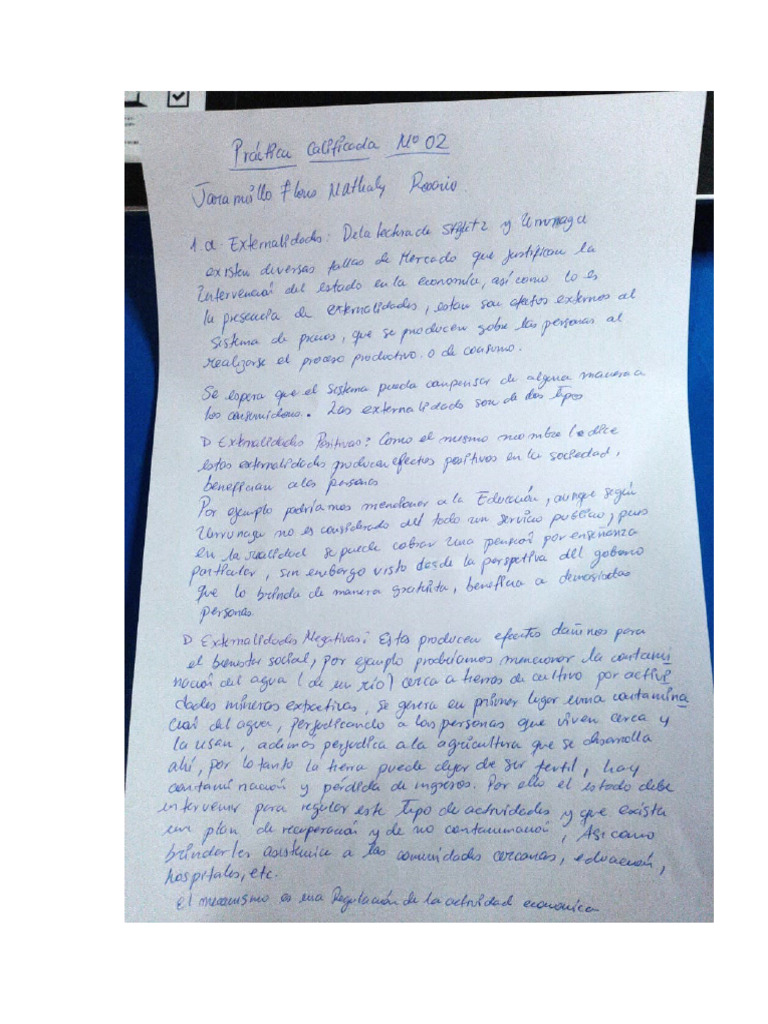 Práctica Calificada Nº 02
Jaramillo Flores Nathaly Rosario.
1. a. Externalidades: De la lectura de Stiglitz y Urrunaga
existen diversas fallas de Mercado que justifican la
Intervención del estado en la economía, así como lo es
la presencia de externalidades, estan son efectos externos al
sistema de precios, que se producen sobre las personas al
realizarse el proceso productivo o de consumo.
Se espera que el sistema pueda compensar de alguna manera a
los consumidores. Las externalidades son de dos tipos
Externalidades Positivas: Como el mismo nombre lo dice
estas externalidades producen efectos positivos en la sociedad,
benefician a las personas
Por ejemplo podríamos mencionar a la Educación, aunque según
Urrunaga no es considerado del todo un servicio público, pues
en la realidad se puede cobrar una pensión por enseñanza
particular, sin embargo visto desde la perspetiva del gobierno
que lo brinda de manera gratuita, beneficia a demasiadas
personas.
Externalidades Negativas: Estas producen efectos dañinos para
el bienestar social, por ejemplo podríamos mencionar la contami
nación del agua (de un río) cerca a tierras de cultivo por activi
dades mineras extractivas, se genera en primer lugar una contamina
ción del agua, perjudicando a las personas que viven cerca y
la usan, además perjudica a la agricultura que se desarrolla
ahí, por lo tanto la tierra puede dejar de ser fertil, hay
contaminación y pérdida de ingresos. Por ello el estado debe
intervenir para regular este tipo de actividades y que exista
un plan de recuperación y de no contaminación, Así como
brindarles asistencia a las comunidades cercanas, educación,
hospitales, etc.
El mecanismo es una Regulación de la actividad economica